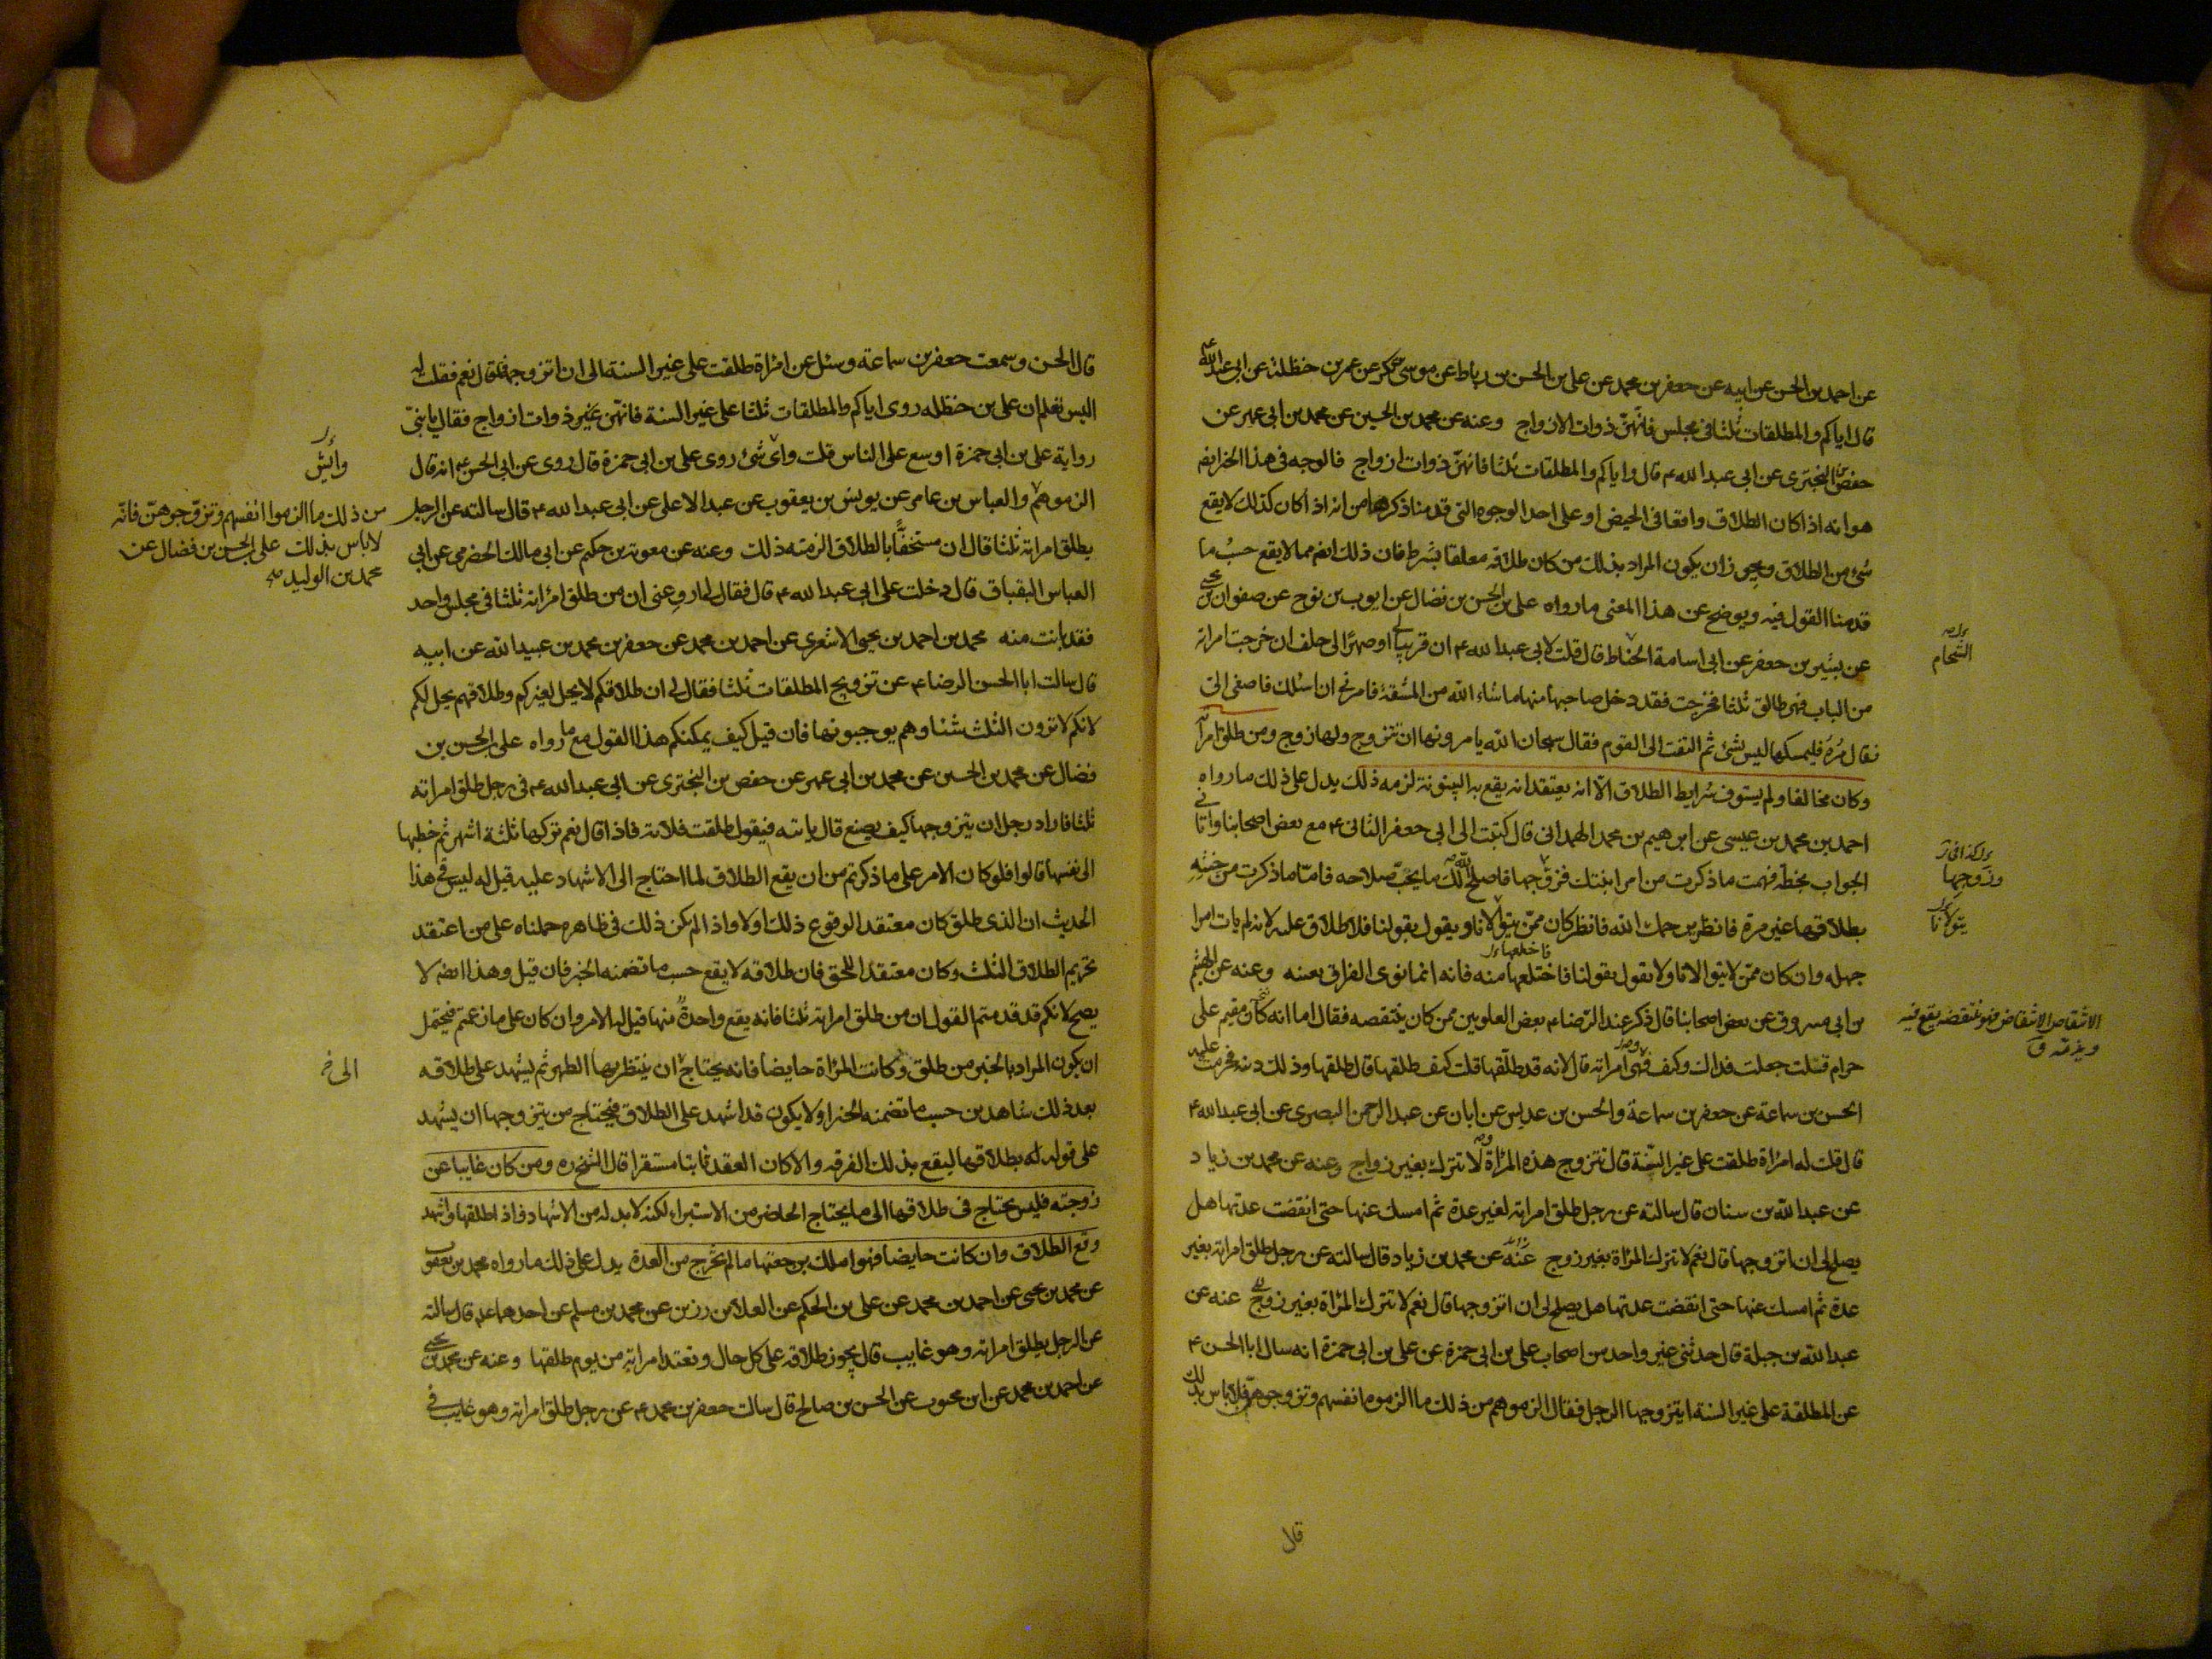 عن احمد بن الحسن عن ابيه عن جعفر بن محمد عن علي بن الحسن بن رباط عن موسى بن بكر عن عمر بن حنظلة عن ابي عبد الله ع
قال اياكم والمطلقات ثلثا في مجلس فانهن ذوات الازواج وعنه عن محمد بن الحسين عن محمد بن ابي عمير عن
حفص بن البختري عن ابي عبد الله ع قال واياكم والمطلقات ثلثا فانهن ذوات ازواج فالوجه في هذا الخبر ايضا
هو انه اذا كان الطلاق واقعا في الحيض او على احد الوجوه التي قدمنا ذكرها من انه اذا كان كذلك لا يقع
شئ من الطلاق ويجوز ان يكون المراد بذلك من كان طلاقه معلقا بشرط فان ذلك ايضا مما لا يقع حسب ما
قدمنا القول فيه ويوضح عن هذا المعنى ما رواه علي بن الحسن بن فضال عن ايوب بن نوح عن صفوان بن يحيى
عن بشير بن جعفر عن ابي اسامة الحناط قال قلت لابي عبد الله ع ان قريبا لي او صهرا لي حلف ان خرجت امراته
الشحام
من الباب فهي طالق ثلثا فخرجت فقد دخل صاحبها منها ما شاء الله من المشقة فامرني ان اسئلك فاصغى الي
فقال مره فليمسكها ليس بشئ ثم التفت الى القوم فقال سبحان الله يامرونها ان تتزوج ولها زوج ومن طلق امراته
وكان مخالفا ولم يستوف شرايط الطلاق الا انه يعتقد انه يقع به البينونة لزمه ذلك يدل على ذلك ما رواه
احمد بن محمد بن عيسى عن ابرهيم بن محمد الهمداني قال كتبت الى ابي جعفر الثاني ع مع بعض اصحابنا واتاني
الجواب بخطه فهمت ما ذكرت من امر ابنتك وزوجها فاصلح الله لك ما يحب صلاحه فاما ما ذكرت من حنثه
وزوجها
بطلاقها غير مرة فانظر يرحمك الله فانظر كان ممن يتولانا ويقول بقولنا فلا طلاق عليه لانه لم يات امرا
يتولانا
جهله وان كان ممن لا يتولانا ولا يقول بقولنا فاختلعها منه فانه انما نوى الفراق بعينه وعنه عن الهيثم
فاخلعها
بن ابي مسروق عن بعض اصحابنا قال ذكر عند الرضا ع بعض العلويين ممن كان ينتقصه فقال اما انه كان مقيم على
حرام قلت جعلت فداك وكيف وهي امراته قال لانه قد طلقها قلت كيف طلقها قال طلقها وذلك دينه فحرمت عليه
الحسن بن سماعة عن جعفر بن سماعة والحسن بن عديس عن ابان عن عبد الرحمن البصري عن ابي عبد الله ع
قال قلت له امراة طلقت على غير السنة قال تتزوج هذه المراة لا تترك بغير زواج وعنه عن محمد بن زياد
عن عبد الله بن سنان قال سالته عن رجل طلق امراته لغير عدة ثم امسك عنها حتى انقضت عدتها هل
يصلح لي ان اتزوجها قال نعم لا تترك المراة بغير زوج عنه عن محمد بن زياد قال سالته عن رجل طلق امراته بغير
عدة ثم امسك عنها حتى انقضت عدتها هل يصلح لي ان اتزوجها قال نعم لا تترك المراة بغير زوج عنه عن
عبد الله بن جبلة قال حدثني غير واحد من اصحاب علي بن ابي حمزة عن علي بن ابي حمزة انه سال ابا الحسن ع
عن المطلقة على غير السنة ايتزوجها الرجل فقال الزموهم من ذلك ما الزموه انفسهم وتزوجوهن فلا باس بذلك
قال
قال الحسن وسمعت جعفر بن سماعة وسئل عن امراة طلقت على غير السنة الى ان اتزوجها فقال نعم فقلت له
اليس تعلم ان علي بن حنظلة روى اياكم والمطلقات ثلثا على غير السنة فانهن غير ذوات ازواج فقال يا بني
رواية علي بن ابي حمزة اوسع على الناس قلت واي شئ روى علي بن ابي حمزة قال روى عن ابي الحسن ع انه قال
وايش
الزموهم والعباس بن عامر عن يونس بن يعقوب عن عبد الاعلى عن ابي عبد الله ع قال سالته عن الرجل
من ذلك ما الزموا انفسهم وتزوجوهن فانه
لا باس بذلك علي بن الحسن بن فضال عن
محمد بن الوليد صح
يطلق امراته ثلثا قال ان مستخفا بالطلاق الزمته ذلك وعنه عن معوية بن حكيم عن ابي مالك الحضرمي عن ابي
العباس البقباق قال دخلت على ابي عبد الله ع قال فقال لي ارو عني ان من طلق امراته ثلثا في مجلس واحد
فقد بانت منه محمد بن احمد بن يحيى الاشعري عن احمد بن محمد عن جعفر بن محمد بن عبيد الله عن ابيه
قال سالت ابا الحسن الرضا ع عن تزويج المطلقات ثلثا فقال لي ان طلاقكم لا يحل لغيركم وطلاقهم يحل لكم
لانكم لا ترون الثلث شئا وهم يوجبونها فان قيل كيف يمكنكم هذا القول مع ما رواه علي بن الحسن بن
فضال عن محمد بن الحسين عن محمد بن ابي عمير عن حفص بن البختري عن ابي عبد الله ع في رجل طلق امراته
ثلثا فاراد رجل ان يتزوجها كيف يصنع قال ياتيه فيقول طلقت فلانة فاذا قال نعم تركها ثلثة اشهر ثم خطبها
الى نفسها قالوا فلو كان الامر على ما ذكرتم من ان يقع الطلاق لما احتاج الى الاشهاد عليه قيل له ليس في هذا
الحديث ان الذي طلق كان معتقد الوقوع ذلك اولا واذا لم يكن ذلك في ظاهره حملناه على من اعتقد
تحريم الطلاق الثلث وكان معتقدا للحق فان طلاقه لا يقع حسب ما تضمنه الخبر فان قيل وهذا ايضا لا
يصح لانكم قد قدمتم القول ان من طلق امراته ثلثا فانه يقع واحدة منها قيل له الامر وان كان على ما زعمتم فيحتمل
ان يكون المراد بالخبر من طلق وكانت المراة حايضا فانه يحتاج ان ينتظر بها الطهر ثم يشهد على طلاقه
الى خ
بعد ذلك شاهدين حسب ما تضمنه الخبر او لا يكون قد اشهد على الطلاق فيحتاج من يتزوجها ان يشهد
على قوله له بطلاقها ليقع بذلك الفرقة والا كان العقد ثابتا مستقرا قال الشيخ ره ومن كان غايبا عن
زوجته فليس يحتاج في طلاقها الى ما يحتاج الحاضر من الاستبراء لكنه لا بد له من الاشهاد فاذا طلقها واشهد
وقع الطلاق وان كانت حايضا فهو املك برجعتها ما لم تخرج من العدة يدل على ذلك ما رواه محمد بن يعقوب
عن محمد بن يحيى عن احمد بن محمد عن علي بن الحكم عن العلا بن رزين عن محمد بن مسلم عن احدهما ع قال سالته
عن الرجل يطلق امراته وهو غايب قال يجوز طلاقه على كل حال وتعتد امراته من يوم طلقها وعنه عن محمد بن يحيى
عن احمد بن محمد عن ابن محبوب عن الحسن بن صالح قال سالت جعفر بن محمد ع عن رجل طلق امراته وهو غايب في